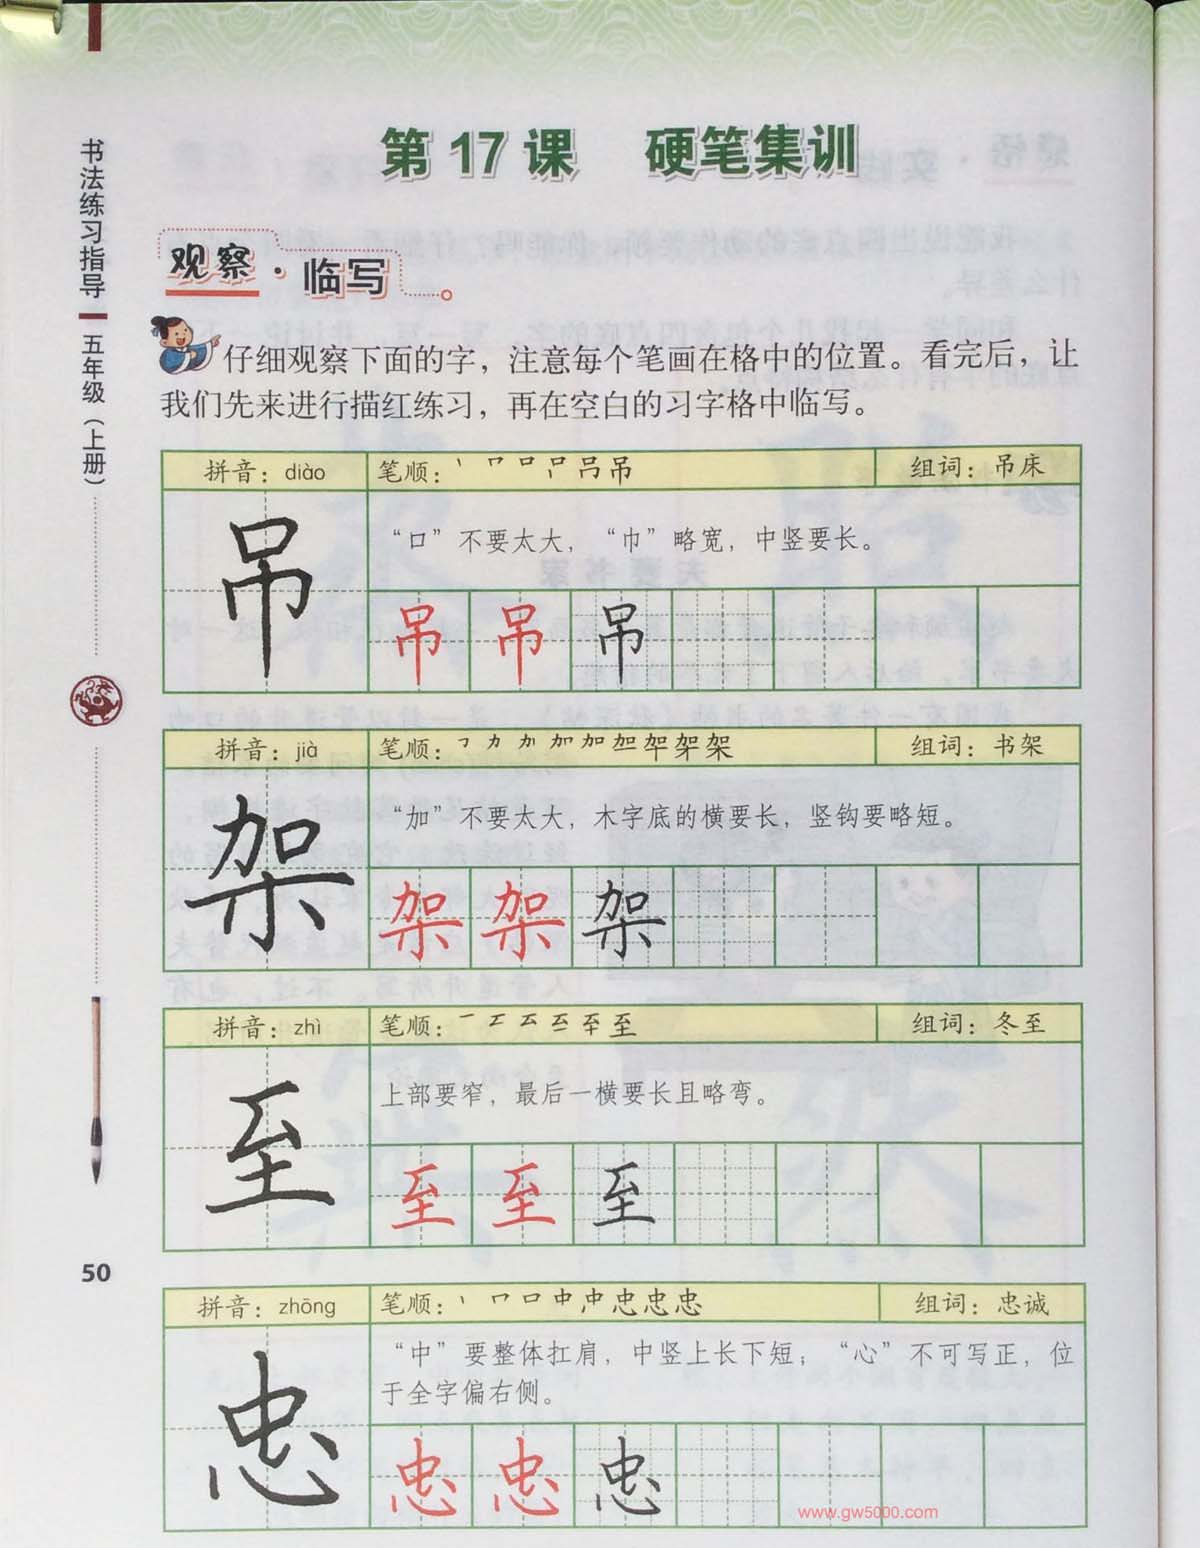 第 17 课 硬笔集训
书法练习指导
五年级（上册）
观察·临写
仔细观察下面的字，注意每个笔画在格中的位置。看完后，让
我们先来进行描红练习，再在空白的习字格中临写。
拼音：diào 笔顺： 组词：吊床
吊
“口”不要太大，“巾”略宽，中竖要长。
吊 吊 吊
拼音：jià 笔顺： 组词：书架
架
“加”不要太大，木字底的横要长，竖钩要略短。
架 架 架
拼音：zhì 笔顺： 组词：冬至
至
上部要窄，最后一横要长且略弯。
至 至 至
50
拼音：zhōng 笔顺： 组词：忠诚
忠
“中”要整体扛肩，中竖上长下短；“心”不可写正，位
于全字偏右侧。
忠 忠 忠
www.gw5000.com